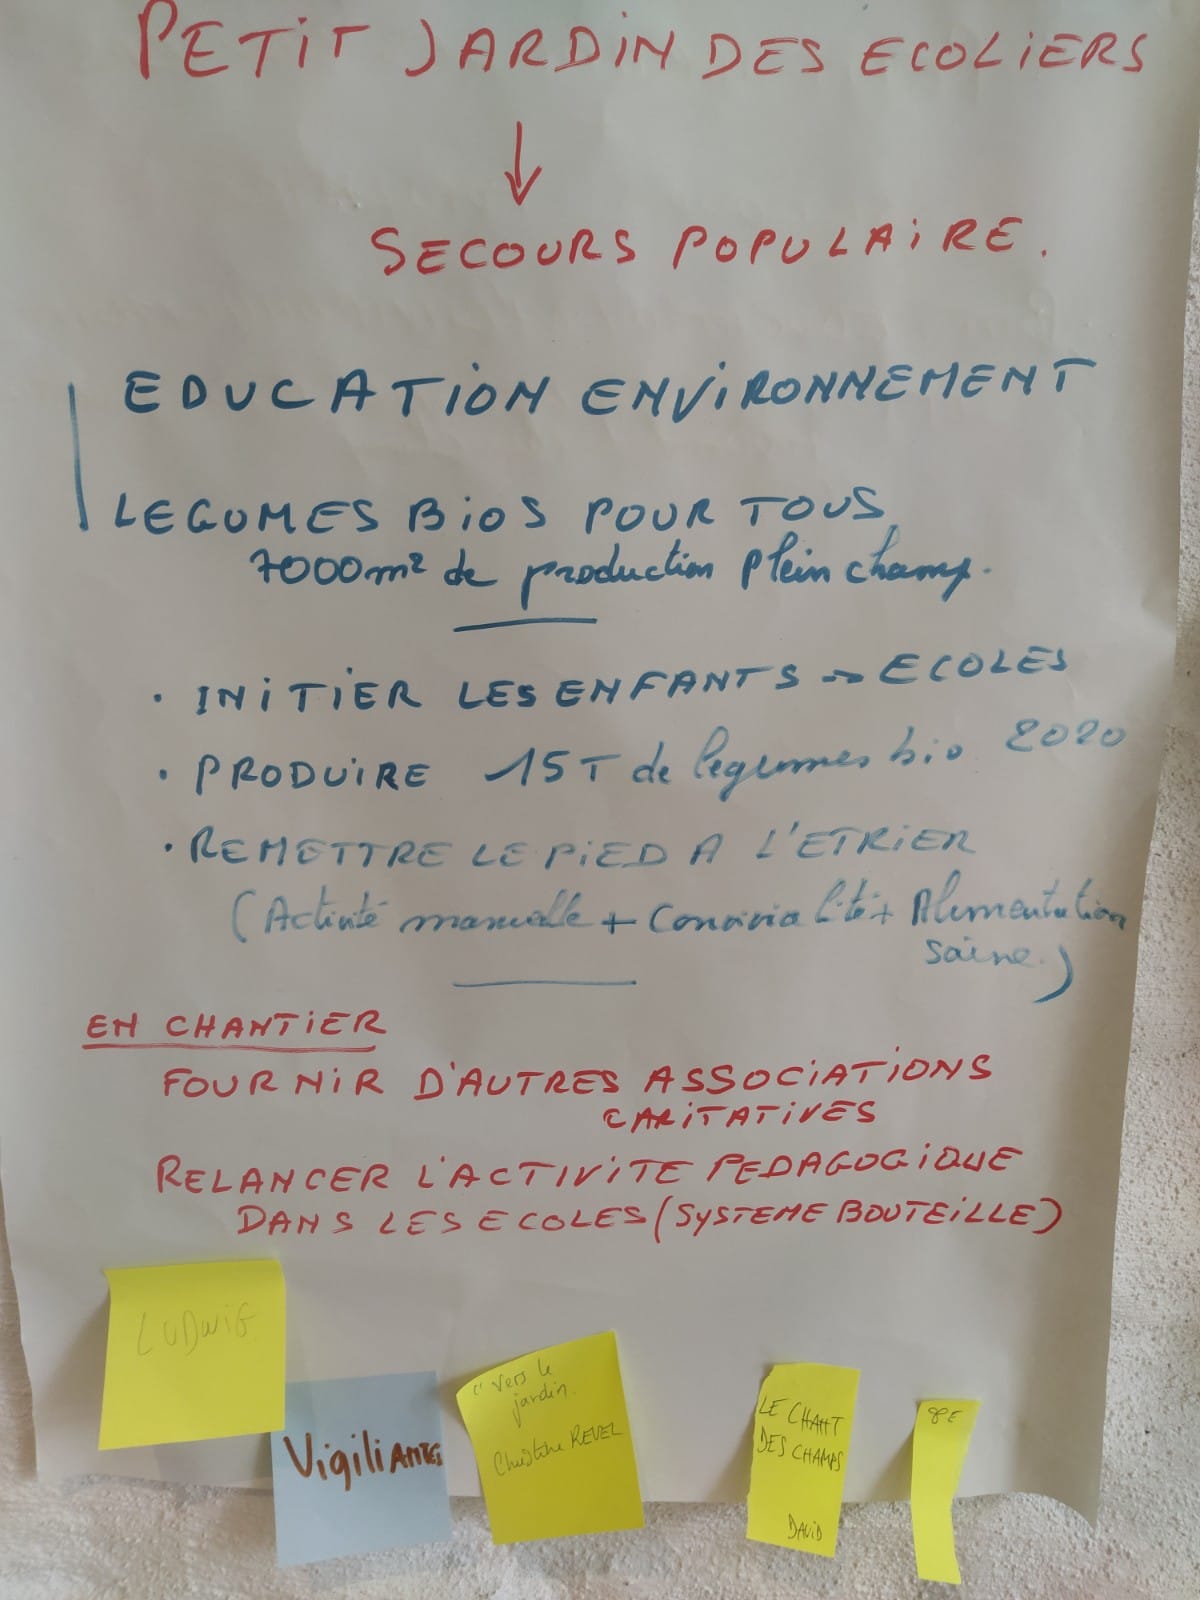 PETIT JARDIN DES ECOLIERS
↓
SECOURS POPULAIRE.
EDUCATION ENVIRONNEMENT
LEGUMES BIOS POUR TOUS
7000m² de production plein champ.
• INITIER LES ENFANTS → ECOLES
• PRODUIRE 15T de légumes bio 2020
• REMETTRE LE PIED A L'ETRIER
(Activité manuelle + Convivialité + Alimentation
saine.)
EN CHANTIER
FOURNIR D'AUTRES ASSOCIATIONS
CARITATIVES
RELANCER L'ACTIVITE PEDAGOGIQUE
DANS LES ECOLES (SYSTEME BOUTEILLE)
LUDWIG
Vigili
Vers le
jardin.
Christine REVEL
LE CHANT
DES CHAMPS
DAVID